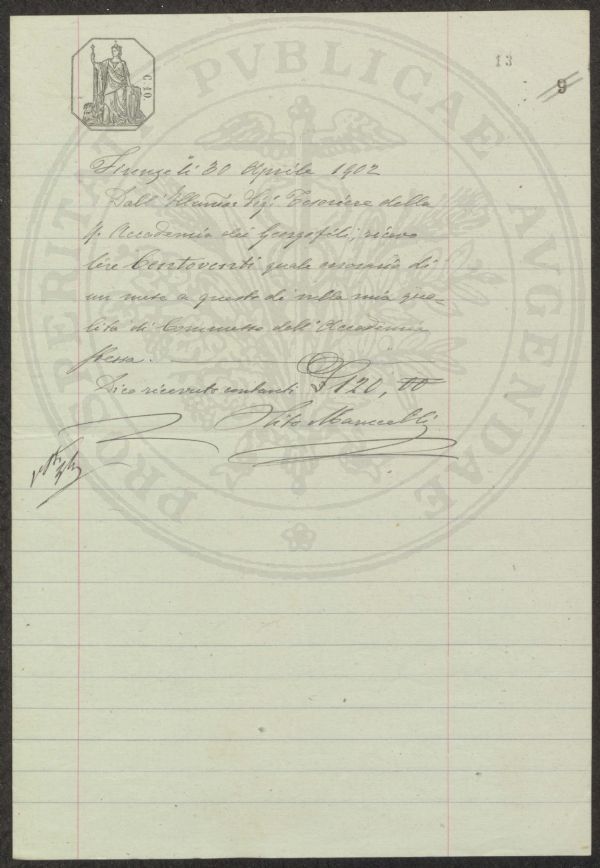 13
9
C. 10.
Firenze li 30 Aprile 1902
Dall' Sig. Tesoriere della
R. Accademia dei Georgofili, ricevo
lire Centoventi quale onorario di
un mese a questo dì nella mia qua-
lità di Commesso dell' Accademia
stessa.
Dico ricevuto contanti £ 120, 00
Vito
PROSPERITATI PVBLICAE AVGENDAE